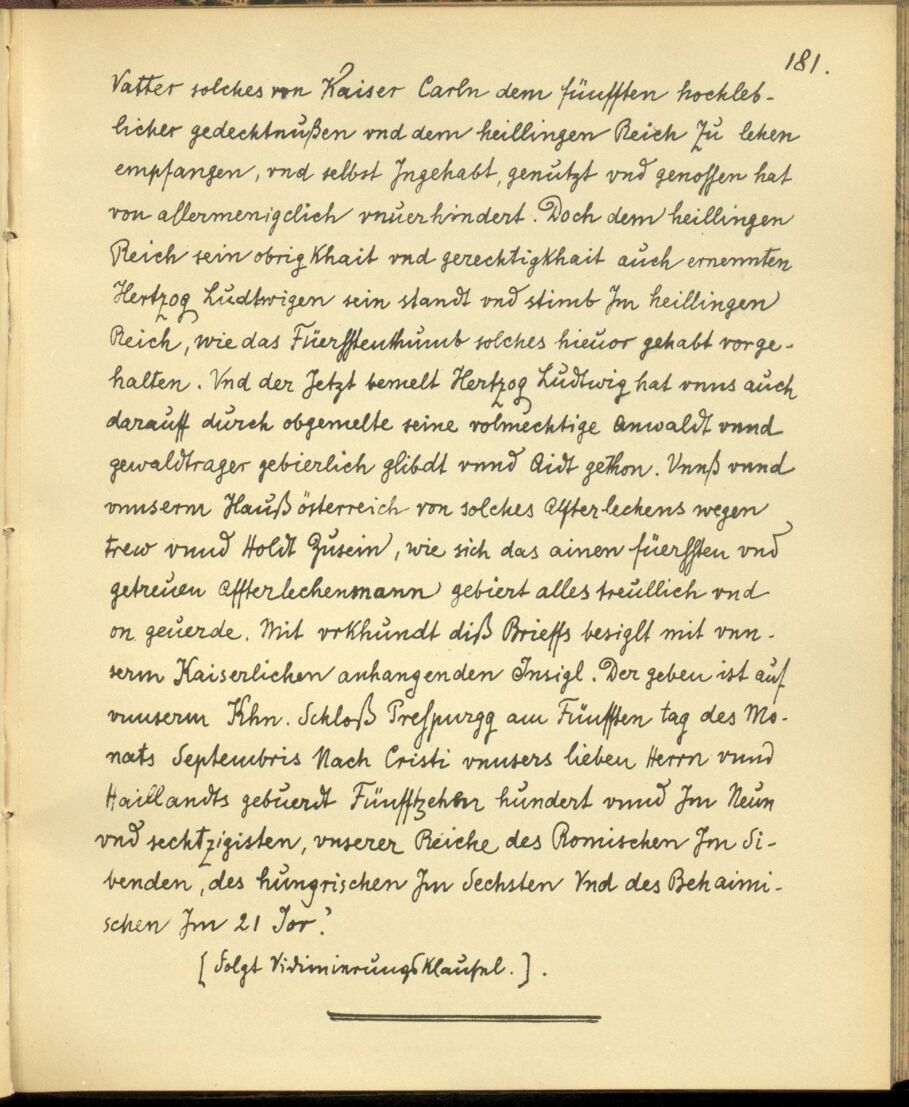 181.
Vatter solches von Kaiser Carln dem fünfften hochleb-
licher gedechtnußen vnd dem heillingen Reich Zu lehen
empfangen, vnd selbst Jngehabt, genutzt vnd genossen hat
von allermenigclich vnuerhindert. Doch dem heillingen
Reich sein obrigkhait vnd gerechtigkhait auch ernennten
Hertzog Ludtwigen sein standt vnd stimb Jm heillingen
Reich, wie das Füerfftenthumb solches hieuor gehabt vorge-
halten. Vnd der Jetzt bemelt Hertzog Ludtwig hat vnns auch
darauff durch obgemelte seine volmechtige Anwaldt vnnd
gewaldtrager gebierlich glibdt vnnd Aidt gethon. Vnnß vnnd
vnnserm Hauß österreich von solches Affterlechens wegen
trew vnnd Holdt Zusein, wie sich das ainen füerfften vnd
getreuen Affterlechensmann gebiert alles treullich vnd
on geuerde. Mit vrkhundt diß Brieffs besiglt mit vnn-
serm Kaiserlichen anhangenden Insigl. Der geben ist auf
vnnserm Khn. Schloß Prespurgg am Fünfften tag des Mo-
nats Septembris Nach Cristi vnnsers lieben Herrn vnnd
Haillandts gebuerdt Fünfftzehen hundert vnnd Jm Neun
vnd sechtzigisten, vnserer Reiche des Romischen Jm Si-
benden, des hungrischen Jm Sechsten Vnd des Behaimi-
schen Jm 21 Jor.
[Folgt Vidimierungsklausel.].